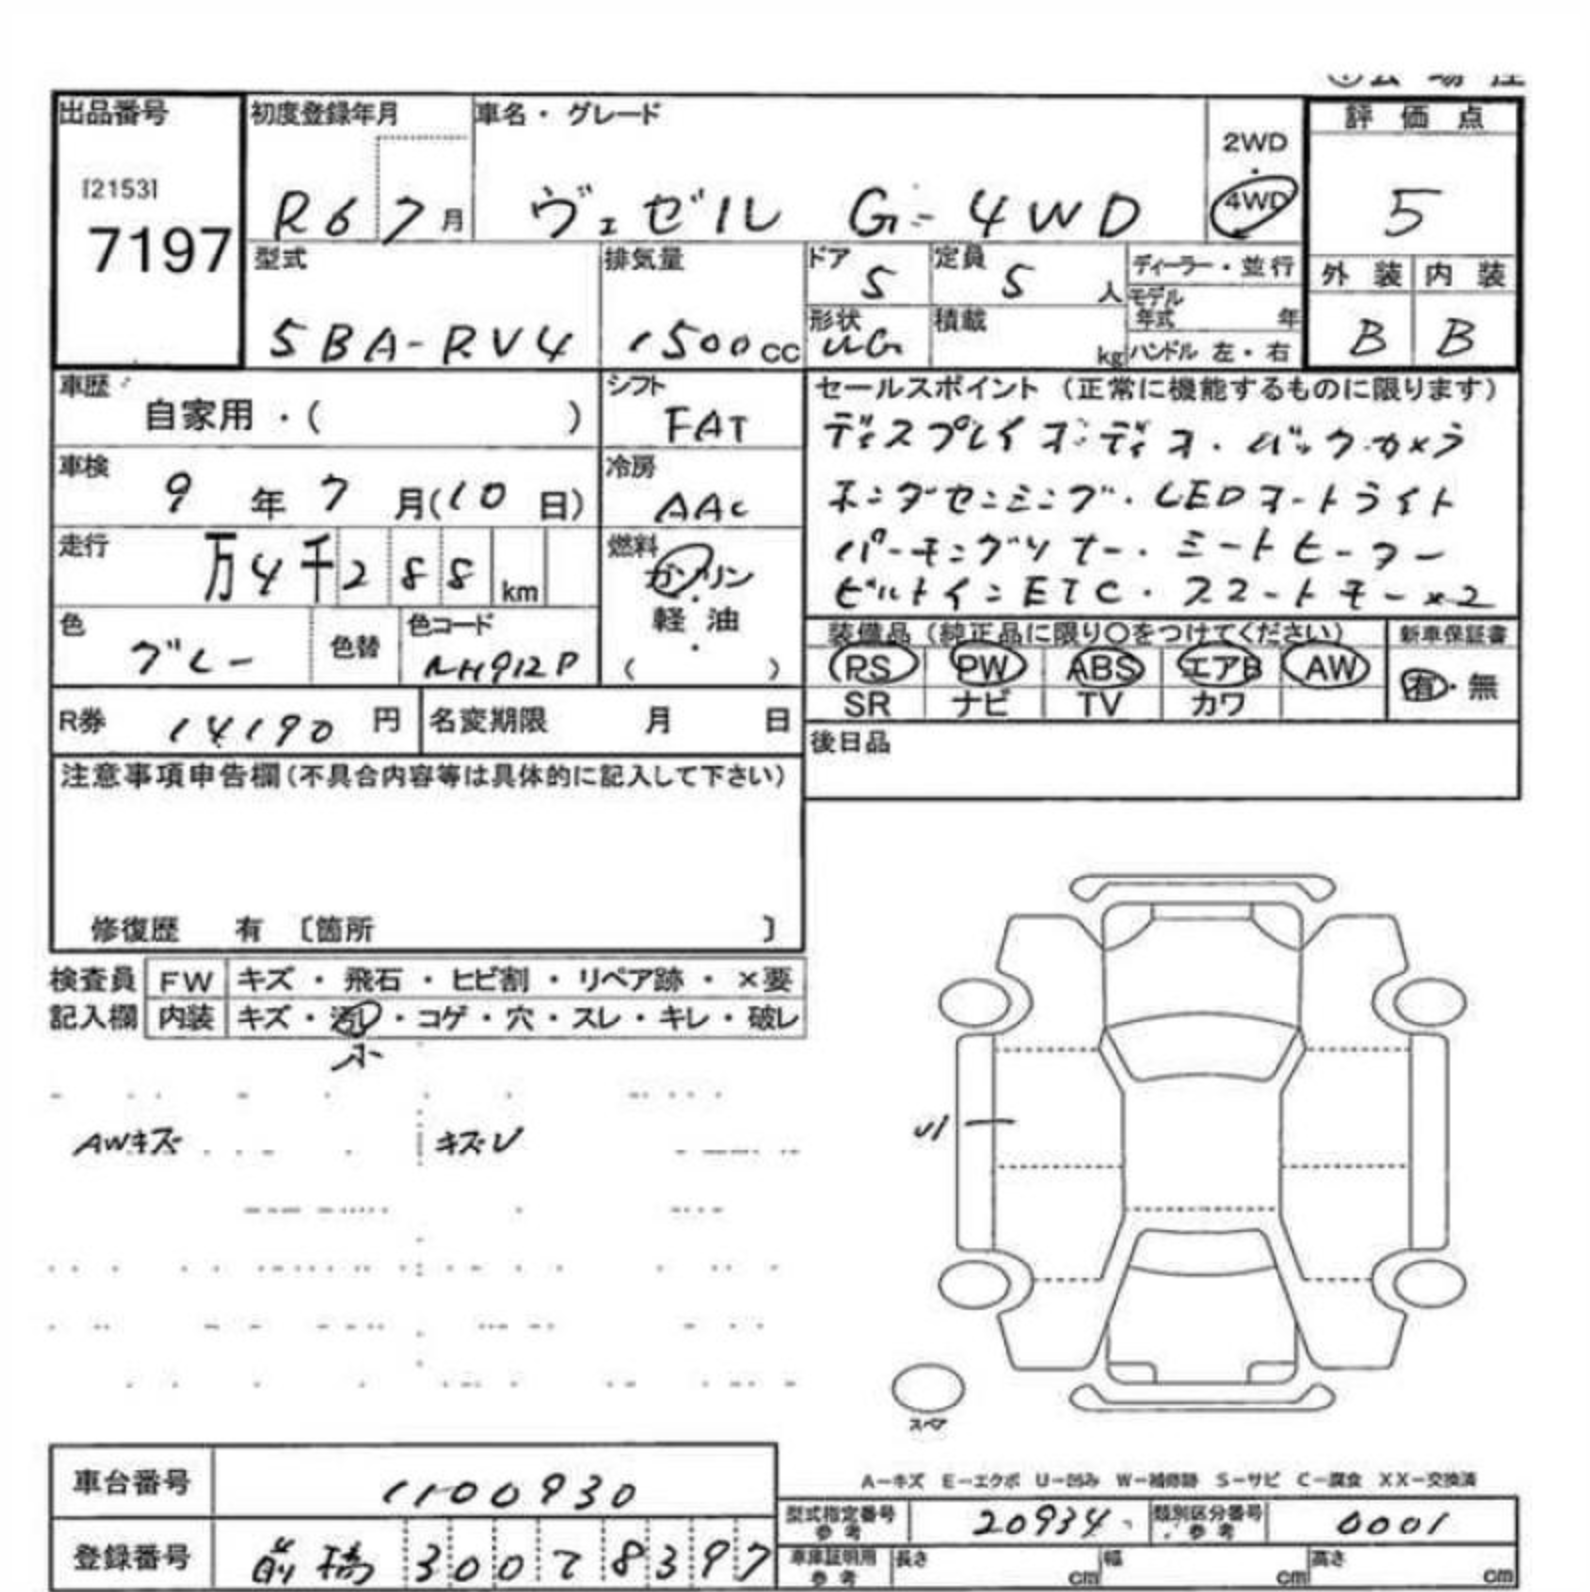 出品番号
[2153]
7197
初度登録年月
R6 7月
車名・グレード
ヴェゼル G 4WD
2WD
・
4WD
評価点
5
外装 内装
B B
型式
5BA-RV4
排気量
1500cc
ドア
5
定員
5 人
形状
積載
kg
ディーラー・並行
モデル
年式 年
ハンドル 左・右
車歴
自家用・( )
シフト
FAT
車検
9年7月(10日)
冷房
AAC
走行
万4千288km
燃料
ガソリン
・
軽油
・
( )
色
グレー
色替
色コード
NH912P
R券
14190円
名変期限 月 日
セールスポイント(正常に機能するものに限ります)
ディスプレイオーディオ・バックカメラ
ホンダセンシング・LEDオートライト
シートヒーター
ビルトインETC・スマートキー×2
装備品(純正品に限り○をつけてください)
PS PW ABS エアB AW
SR ナビ TV カワ
新車保証書
有・無
後日品
注意事項申告欄(不具合内容等は具体的に記入して下さい)
修復歴 有 〔箇所 〕
検査員 FW キズ・飛石・ヒビ割・リペア跡・×要
記入欄 内装 キズ・汚れ・コゲ・穴・スレ・キレ・破レ
小
AWキズ
キズU
U1
スペア
A-キズ E-エクボ U-凹み W-補修跡 S-サビ C-腐食 XX-交換済
車台番号
1100930
登録番号
前橋 300 8397
型式指定番号
参考
20934
類別区分番号
参考
0001
車庫証明用
参考
長さ cm
幅 cm
高さ cm